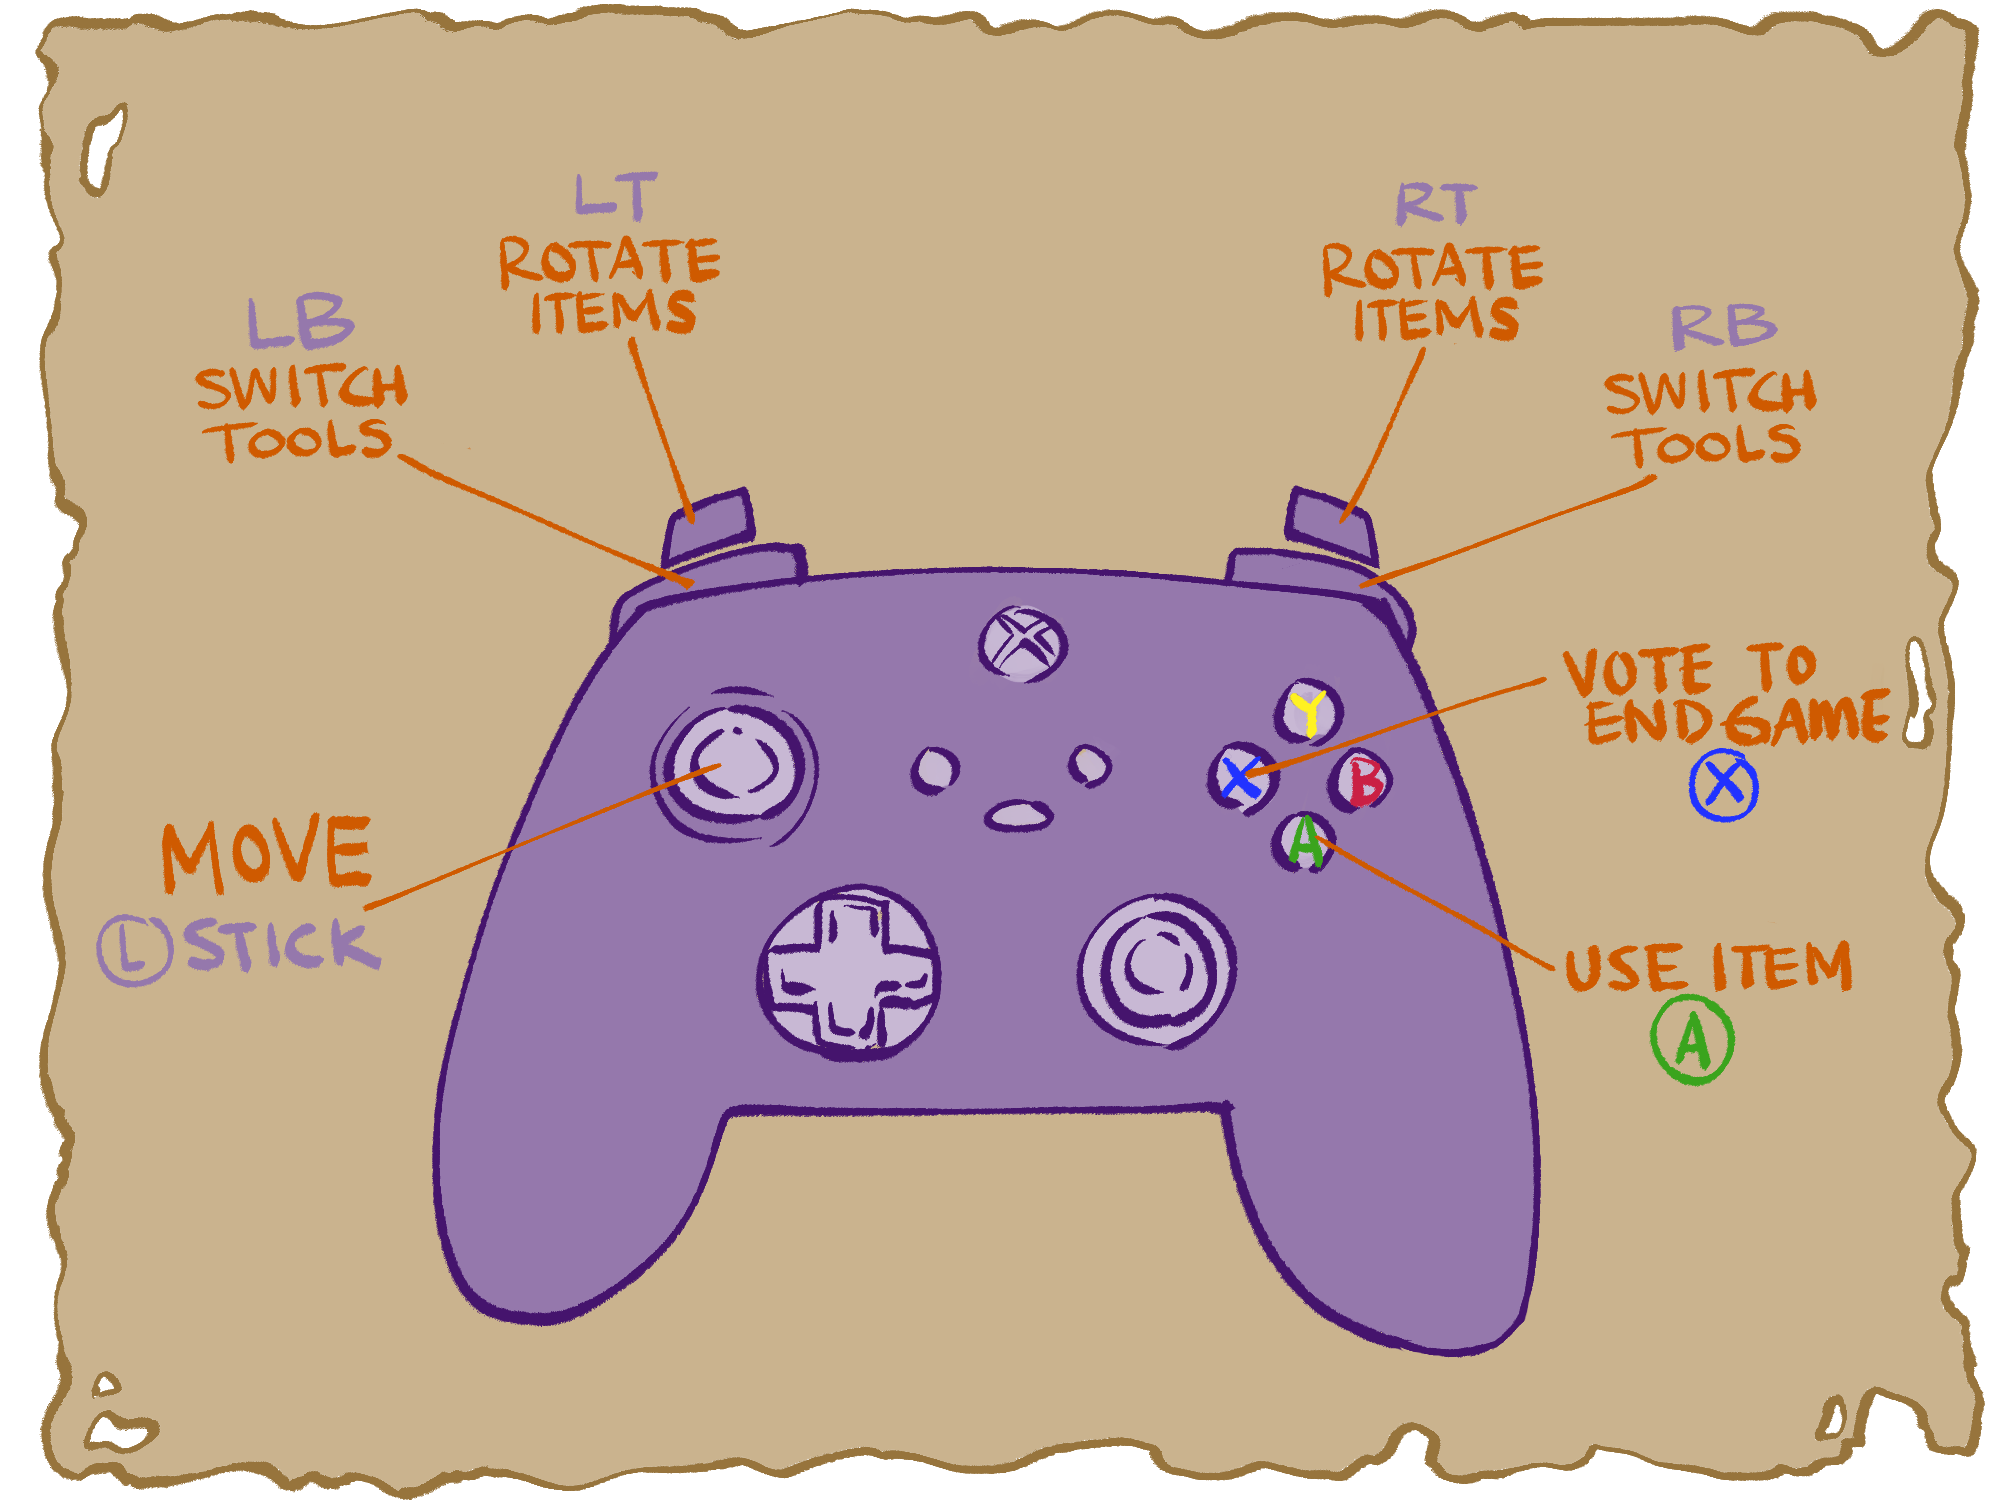 LT
ROTATE
ITEMS
RT
ROTATE
ITEMS
LB
SWITCH
TOOLS
RB
SWITCH
TOOLS
VOTE TO
END GAME
X
Y
X
B
A
MOVE
L STICK
USE ITEM
A